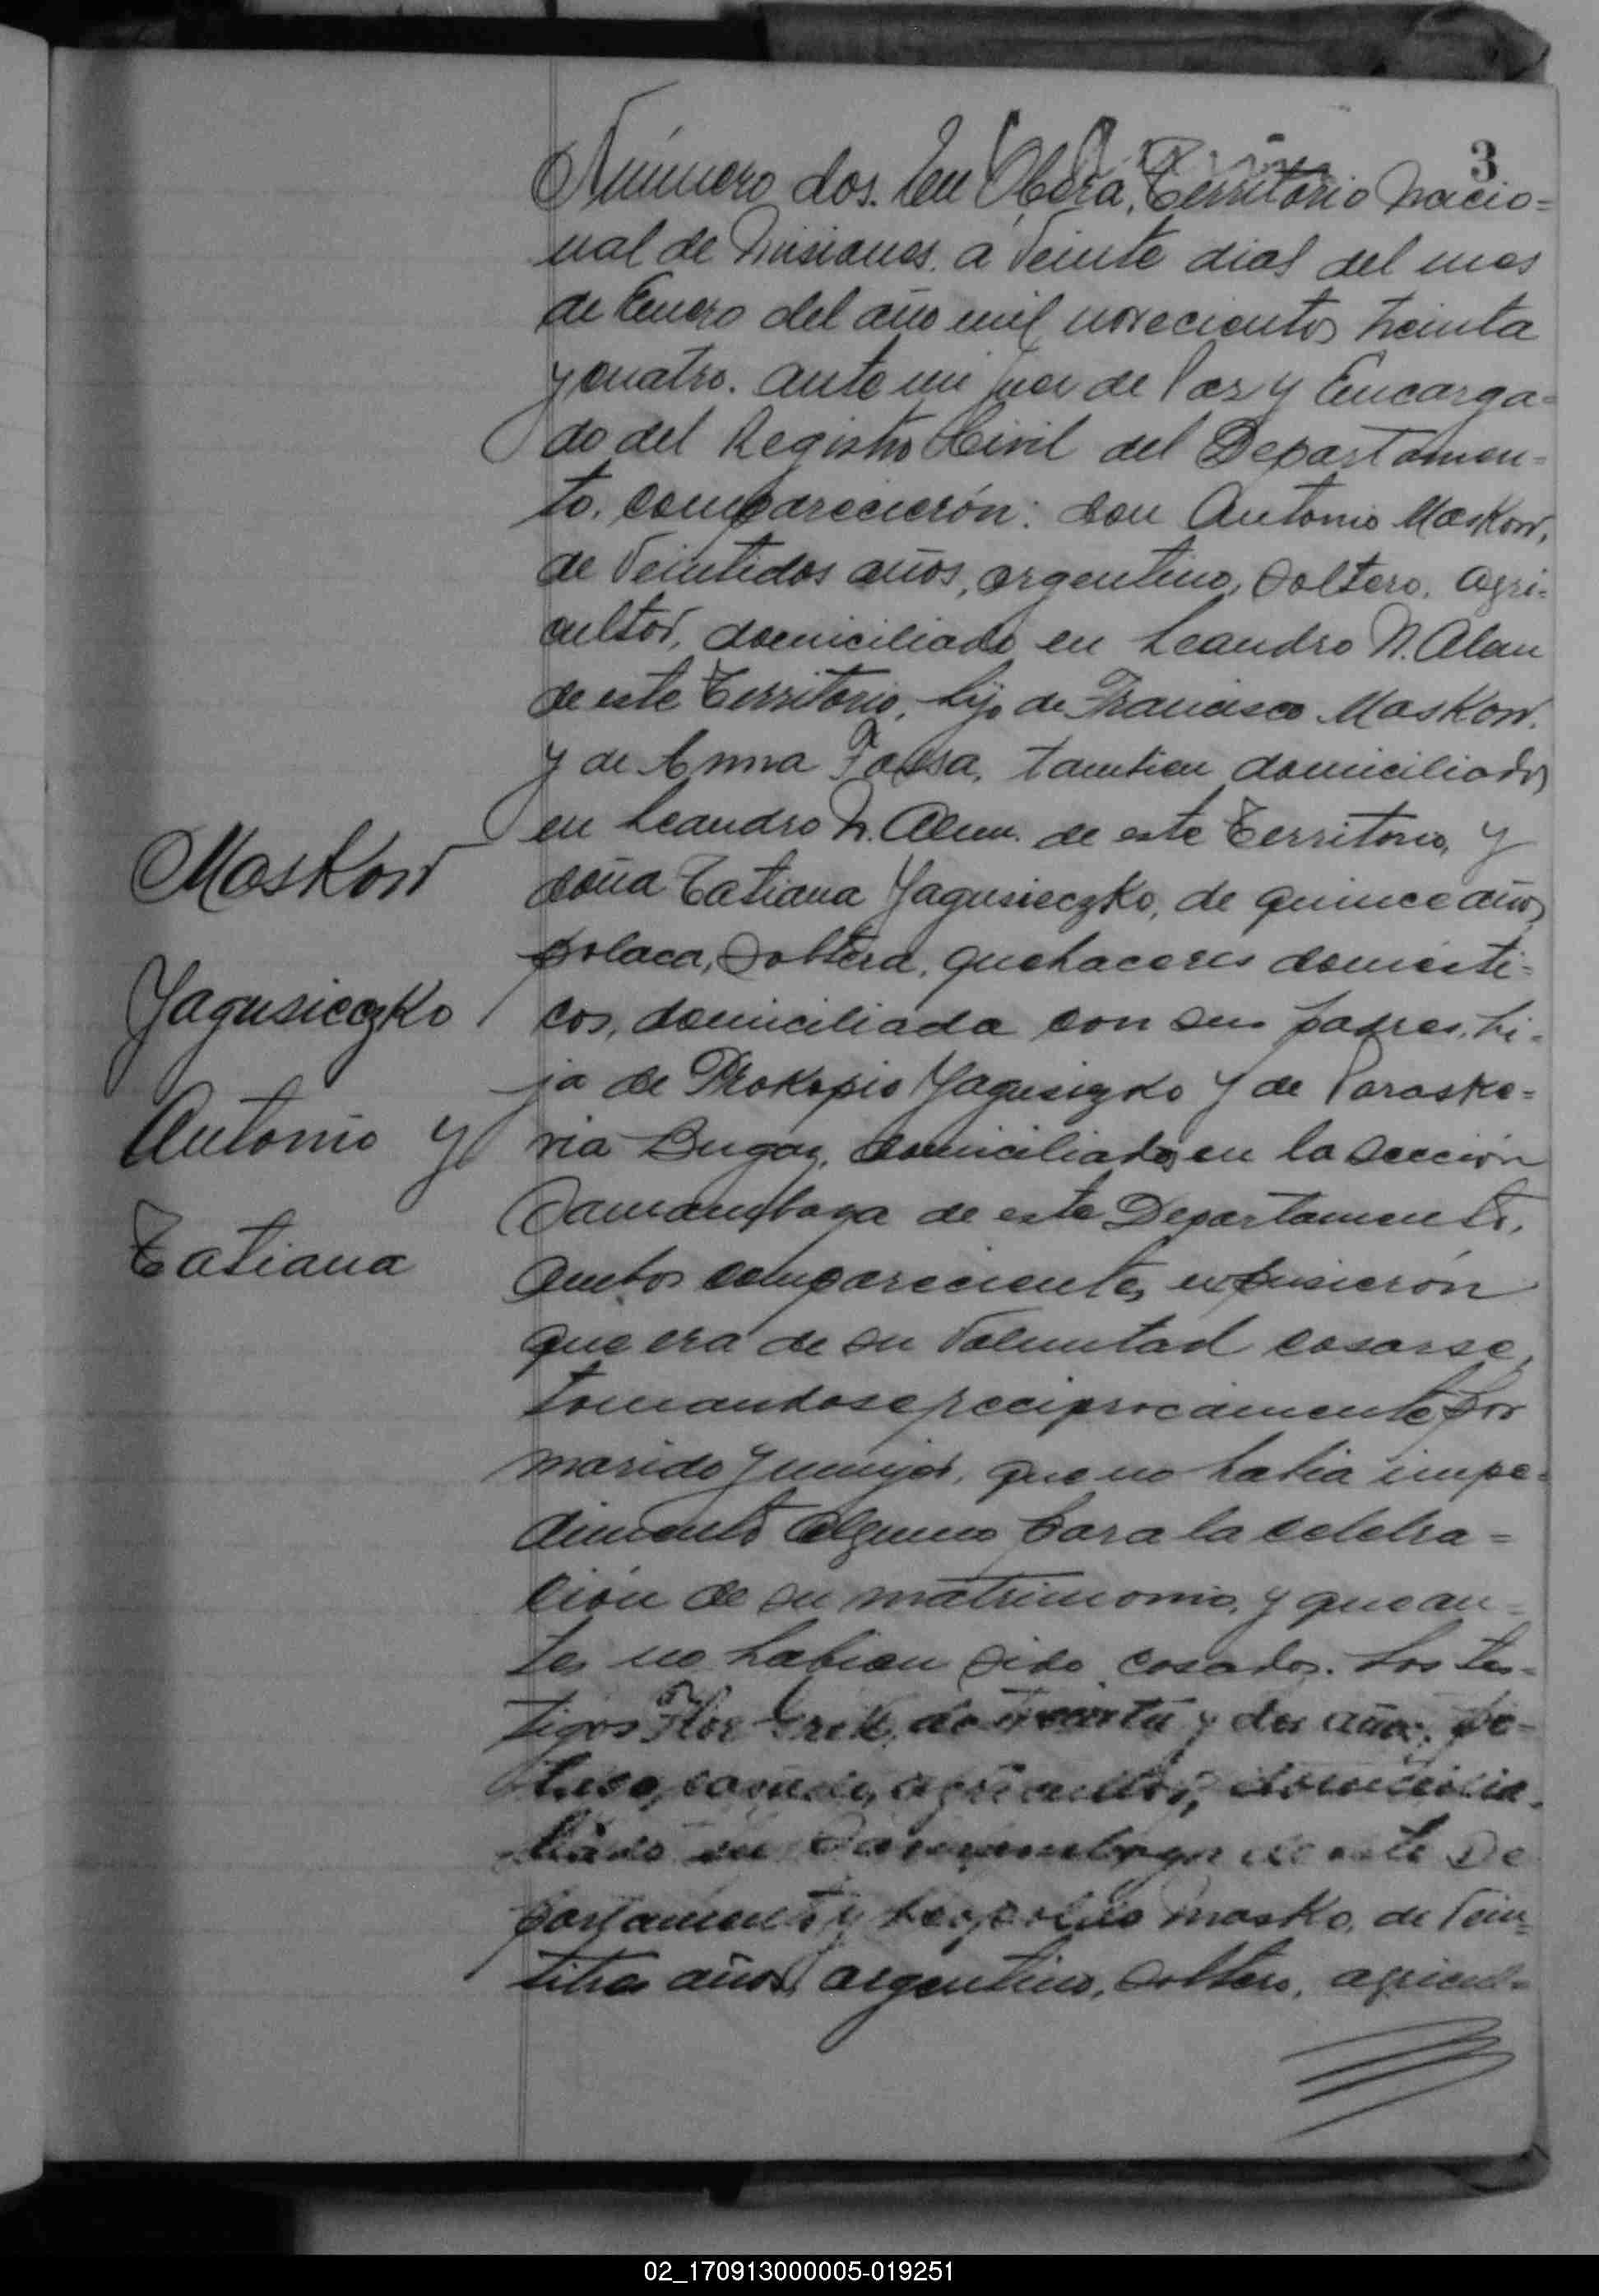 3
Número dos. En Oberá, Territorio Nacio=
nal de Misiones, a veinte dias del mes
de Enero del año mil novecientos treinta
y cuatro. ante mi Juez de Paz y Encarga=
do del Registro Civil del Departamen=
to, comparecierón: don Antonio Maskow,
de veintidos años, argentino, soltero, agri=
cultor, domiciliado en Leandro N. Alen
de este Territorio, hijo de Francisco Maskow.
y de Anna, tambien domiciliados
en Leandro N. Alem. de este Territorio, y
doña Tatiana Yagusieczko, de quince años
polaca, soltera, quehaceres domesti=
cos, domiciliada con sus padres, hi=
ja de Prokopio Yagusiezko y de Paraske=
via Bugay, domiciliados en la Sección
Samambaya de este Departamento,
Ambos comparecientes expusierón
que era de su voluntad casarse,
tomandose reciprocamente por
marido y mujer, que no habia impe=
dimento alguno para la celebra=
ción de su matrimonio, y que an=
tes no habian sido casados. Los tes=
tigos de treinta y dos años, po=
laco, casado, agricultor, domicilia=
liado en Samambaya de este De
partamento y Leopoldo Masko, de vein=
titres años, argentino, soltero, agricul=
Maskow
Yagusieczko
Antonio y
Tatiana
02_170913000005-019251